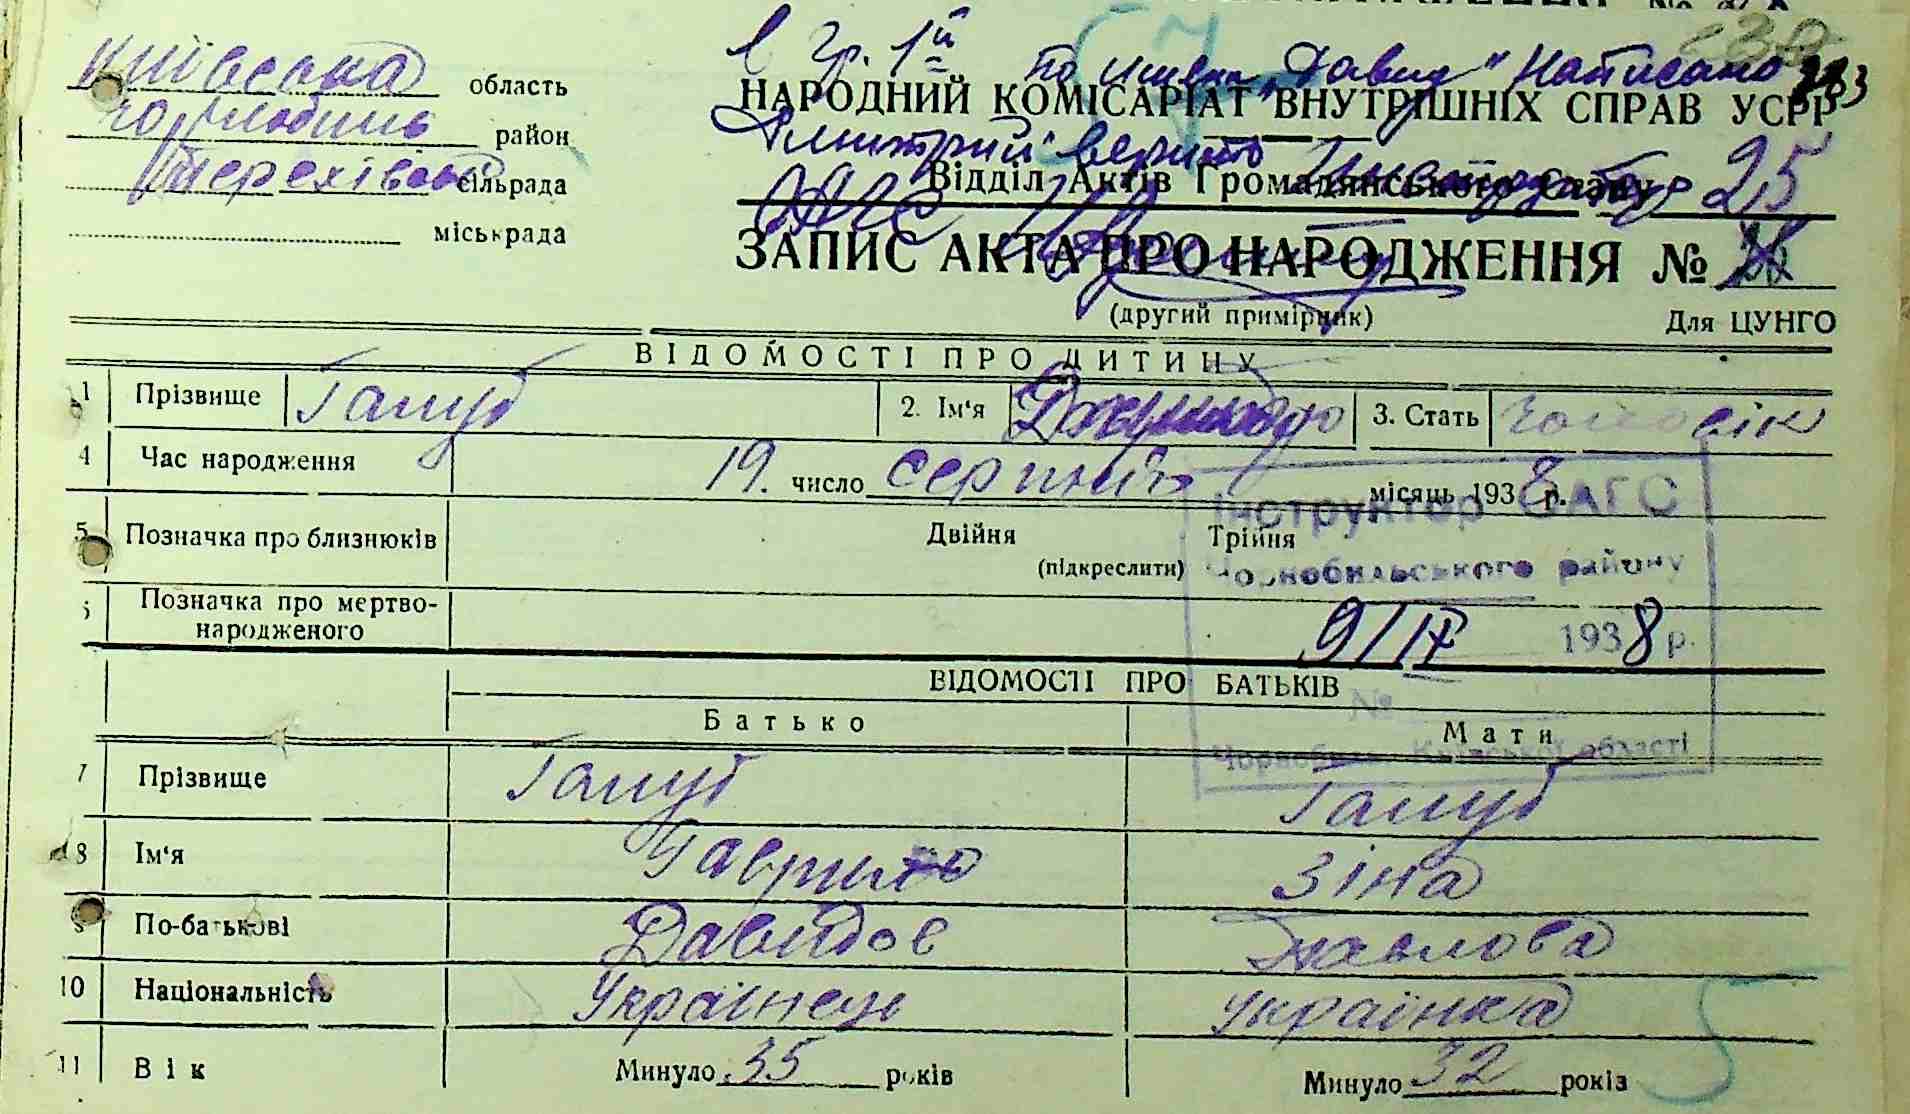 Київська область
Чорнобиль район
Терехівська сільрада
міськрада
в гр. 1й по имени "Давид" Написано
Дмитрий верить
НАРОДНИЙ КОМІСАРІАТ ВНУТРІШНІХ СПРАВ УСРР
Відділ Актів Громадянського Стану
25
ЗАПИС АКТА ПРО НАРОДЖЕННЯ №
(другий примірник)
Для ЦУНГО
ВІДОМОСТІ ПРО ДИТИНУ
1 Прізвище Галуб 2. Ім'я 3. Стать чоловік
4 Час народження 19. число серпня місяць 1938 р.
5 Позначка про близнюків Двійня Трійня
(підкреслити)
Інструктор ЗАГС
Чорнобильського району
6 Позначка про мертво-
народженого
9/IX 1938 р.
№
Чорнобиль, Київської області
ВІДОМОСТІ ПРО БАТЬКІВ
Батько Мати
7 Прізвище Галуб Галуб
8 Ім'я Гаврило Зіна
9 По-батькові Давидов Павлова
10 Національність Українець Українка
11 Вік Минуло 35 років Минуло 32 років